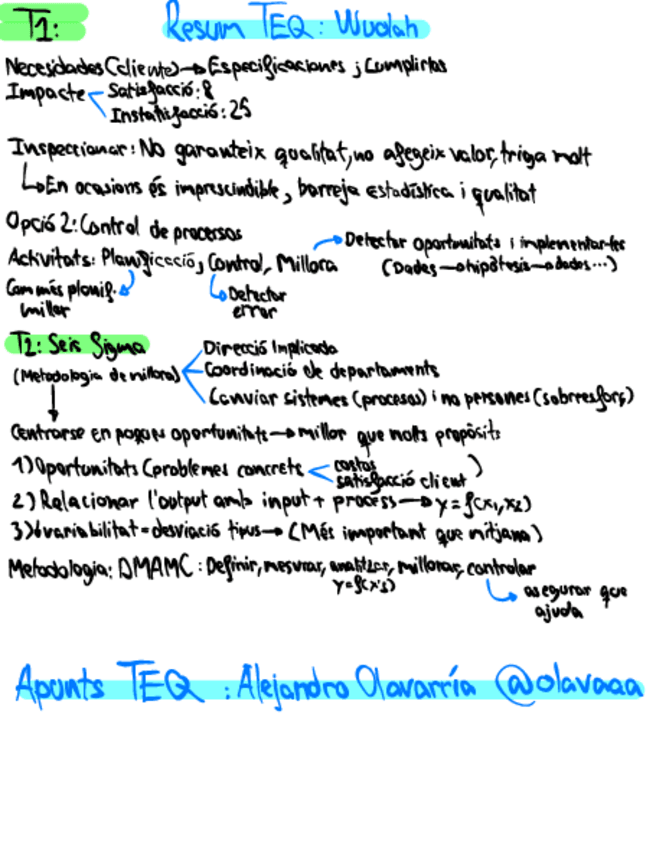 T1: Resum TEQ: Wuolah
Necesidades (cliente) → Especificaciones ; Cumplirlas
Impacte Satisfacció: 8
Insatisfacció: 25
Inspeccionar: No garanteix qualitat, no afegeix valor, triga molt
En ocasions és imprescindible, barreja estadística i qualitat
Opció 2: Control de processos
Activitats: Planificació, Control, Millora → Detectar oportunitats i implementar-les
(Dades → hipòtesis → dades...)
Com més planif. millor
Detectar error
T2: Seis Sigma
(Metodologia de millora)
Direcció Implicada
Coordinació de departaments
Canviar sistemes (procesos) i no persones (sobreesforç)
Centrarse en poques oportunitats → millor que molts propòsits
1) Oportunitats (problemes concrets costos satisfacció client)
2) Relacionar l'output amb input + process → y = f(x1, x2)
3) ↓variabilitat = desviació tipus → (Més important que mitjana)
Metodologia: DMAMC: Definir, mesurar, analitzar, millorar, controlar
y = f(x's)
asegurar que ajuda
Apunts TEQ : Alejandro Olavarría @olavaaa